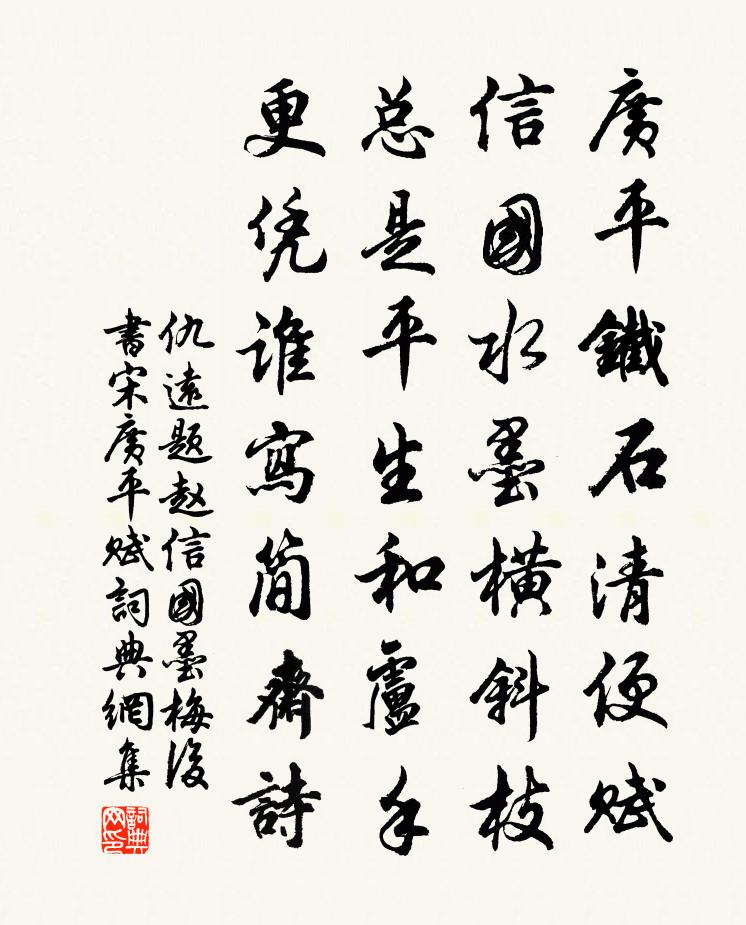 廣平鐵石清便賦
信國水墨橫斜枝
总是平生和盧手
更凭谁寫简齋詩
仇遠题赵信國墨梅後
書宋廣平賦詞典網集
詞典
网印